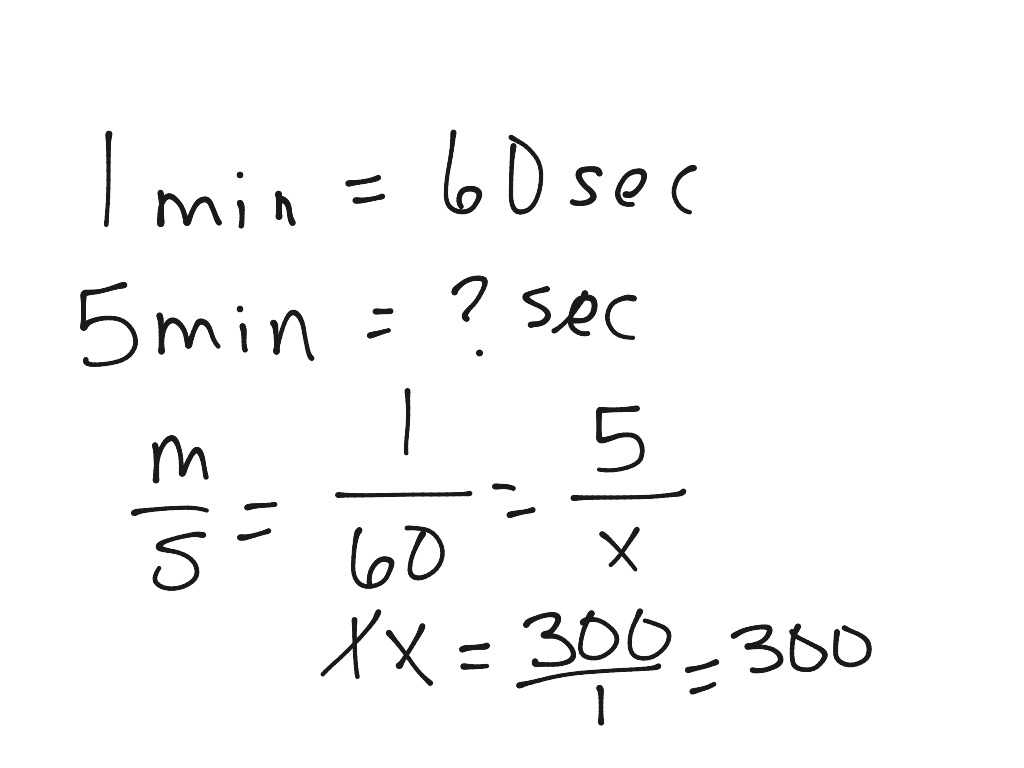 1 min = 60 sec
5 min = ? sec
m/s = 1/60 = 5/x
1x = 300/1 = 300